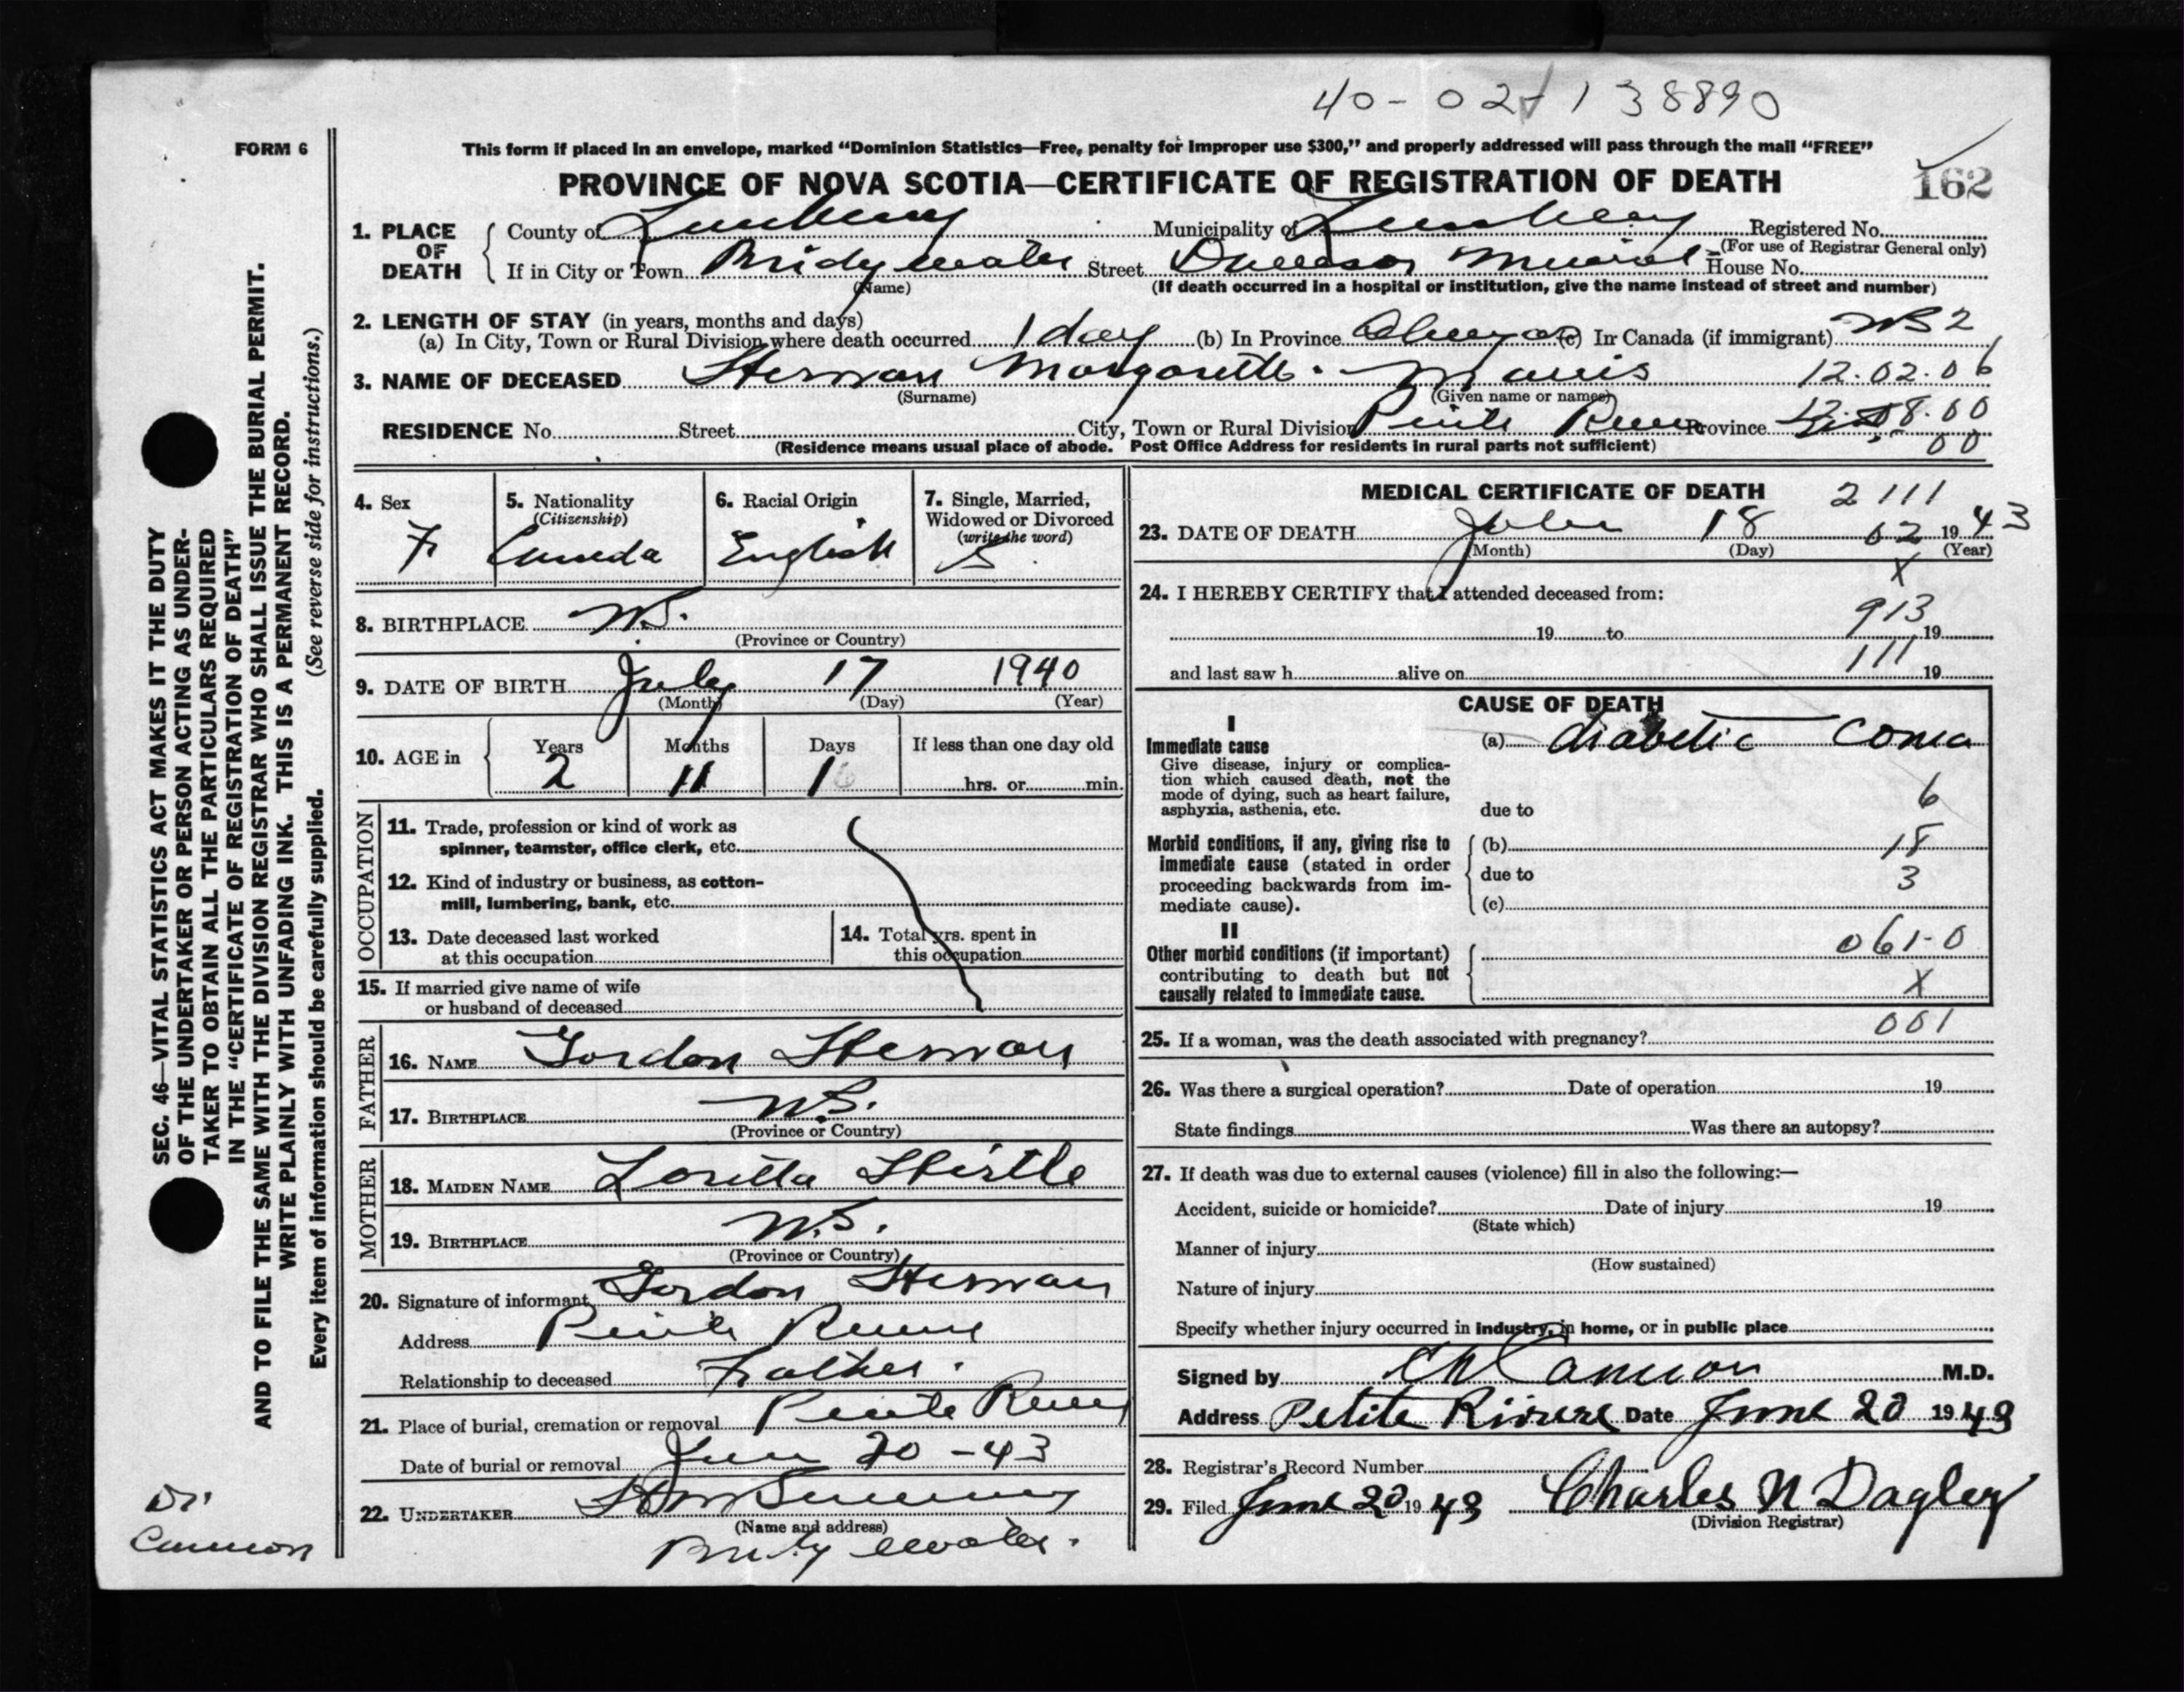 40-02-138890
FORM 6
This form if placed in an envelope, marked “Dominion Statistics—Free, penalty for improper use $300,” and properly addressed will pass through the mail “FREE”
PROVINCE OF NOVA SCOTIA—CERTIFICATE OF REGISTRATION OF DEATH
162
1. PLACE OF DEATH
County of Lunenburg Municipality of Lunenburg Registered No.
(For use of Registrar General only)
If in City or Town Bridgewater Street Dawson Memorial House No.
(Name) (If death occurred in a hospital or institution, give the name instead of street and number)
2. LENGTH OF STAY (in years, months and days)
(a) In City, Town or Rural Division where death occurred 1 day (b) In Province Always (c) In Canada (if immigrant)
3. NAME OF DECEASED Margarette 12.02.06
(Surname) (Given name or names)
RESIDENCE No. Street City, Town or Rural Division Petite Riviere Province 8.00
(Residence means usual place of abode. Post Office Address for residents in rural parts not sufficient) 00
4. Sex F
5. Nationality (Citizenship) Canada
6. Racial Origin English
7. Single, Married, Widowed or Divorced (write the word) S
8. BIRTHPLACE N.S.
(Province or Country)
9. DATE OF BIRTH July 17 1940
(Month) (Day) (Year)
10. AGE in Years 2 Months 11 Days 1 If less than one day old hrs. or min.
OCCUPATION
11. Trade, profession or kind of work as spinner, teamster, office clerk, etc.
12. Kind of industry or business, as cotton-mill, lumbering, bank, etc.
13. Date deceased last worked at this occupation
14. Total yrs. spent in this occupation
15. If married give name of wife or husband of deceased
FATHER
16. NAME Gordon
17. BIRTHPLACE N.S.
(Province or Country)
MOTHER
18. MAIDEN NAME Loretta
19. BIRTHPLACE N.S.
(Province or Country)
20. Signature of informant Gordon
Address Petite Riviere
Relationship to deceased Father.
21. Place of burial, cremation or removal Petite Riviere
Date of burial or removal June 20-43
22. UNDERTAKER
(Name and address)
Bridgewater.
MEDICAL CERTIFICATE OF DEATH 2111
23. DATE OF DEATH June 18 02 1943
(Month) (Day) (Year)
X
24. I HEREBY CERTIFY that I attended deceased from:
913
19 to 19
111
and last saw h alive on 19
CAUSE OF DEATH
I
Immediate cause (a) diabetic coma
Give disease, injury or complication which caused death, not the mode of dying, such as heart failure, asphyxia, asthenia, etc.
6
due to
Morbid conditions, if any, giving rise to immediate cause (stated in order proceeding backwards from immediate cause).
(b) 18
due to 3
(c)
II
Other morbid conditions (if important) contributing to death but not causally related to immediate cause.
061-0
X
001
25. If a woman, was the death associated with pregnancy?
26. Was there a surgical operation? Date of operation 19
State findings Was there an autopsy?
27. If death was due to external causes (violence) fill in also the following:—
Accident, suicide or homicide? Date of injury 19
(State which)
Manner of injury
(How sustained)
Nature of injury
Specify whether injury occurred in industry, in home, or in public place
Signed by Cannon M.D.
Address Petite Riviere Date June 20 1943
28. Registrar's Record Number
29. Filed June 20 1943 Charles N Dagley
(Division Registrar)
SEC. 46—VITAL STATISTICS ACT MAKES IT THE DUTY
OF THE UNDERTAKER OR PERSON ACTING AS UNDER-
TAKER TO OBTAIN ALL THE PARTICULARS REQUIRED
IN THE “CERTIFICATE OF REGISTRATION OF DEATH”
AND TO FILE THE SAME WITH THE DIVISION REGISTRAR WHO SHALL ISSUE THE BURIAL PERMIT.
WRITE PLAINLY WITH UNFADING INK. THIS IS A PERMANENT RECORD.
Every item of information should be carefully supplied. (See reverse side for instructions.)
Dr.
Cannon